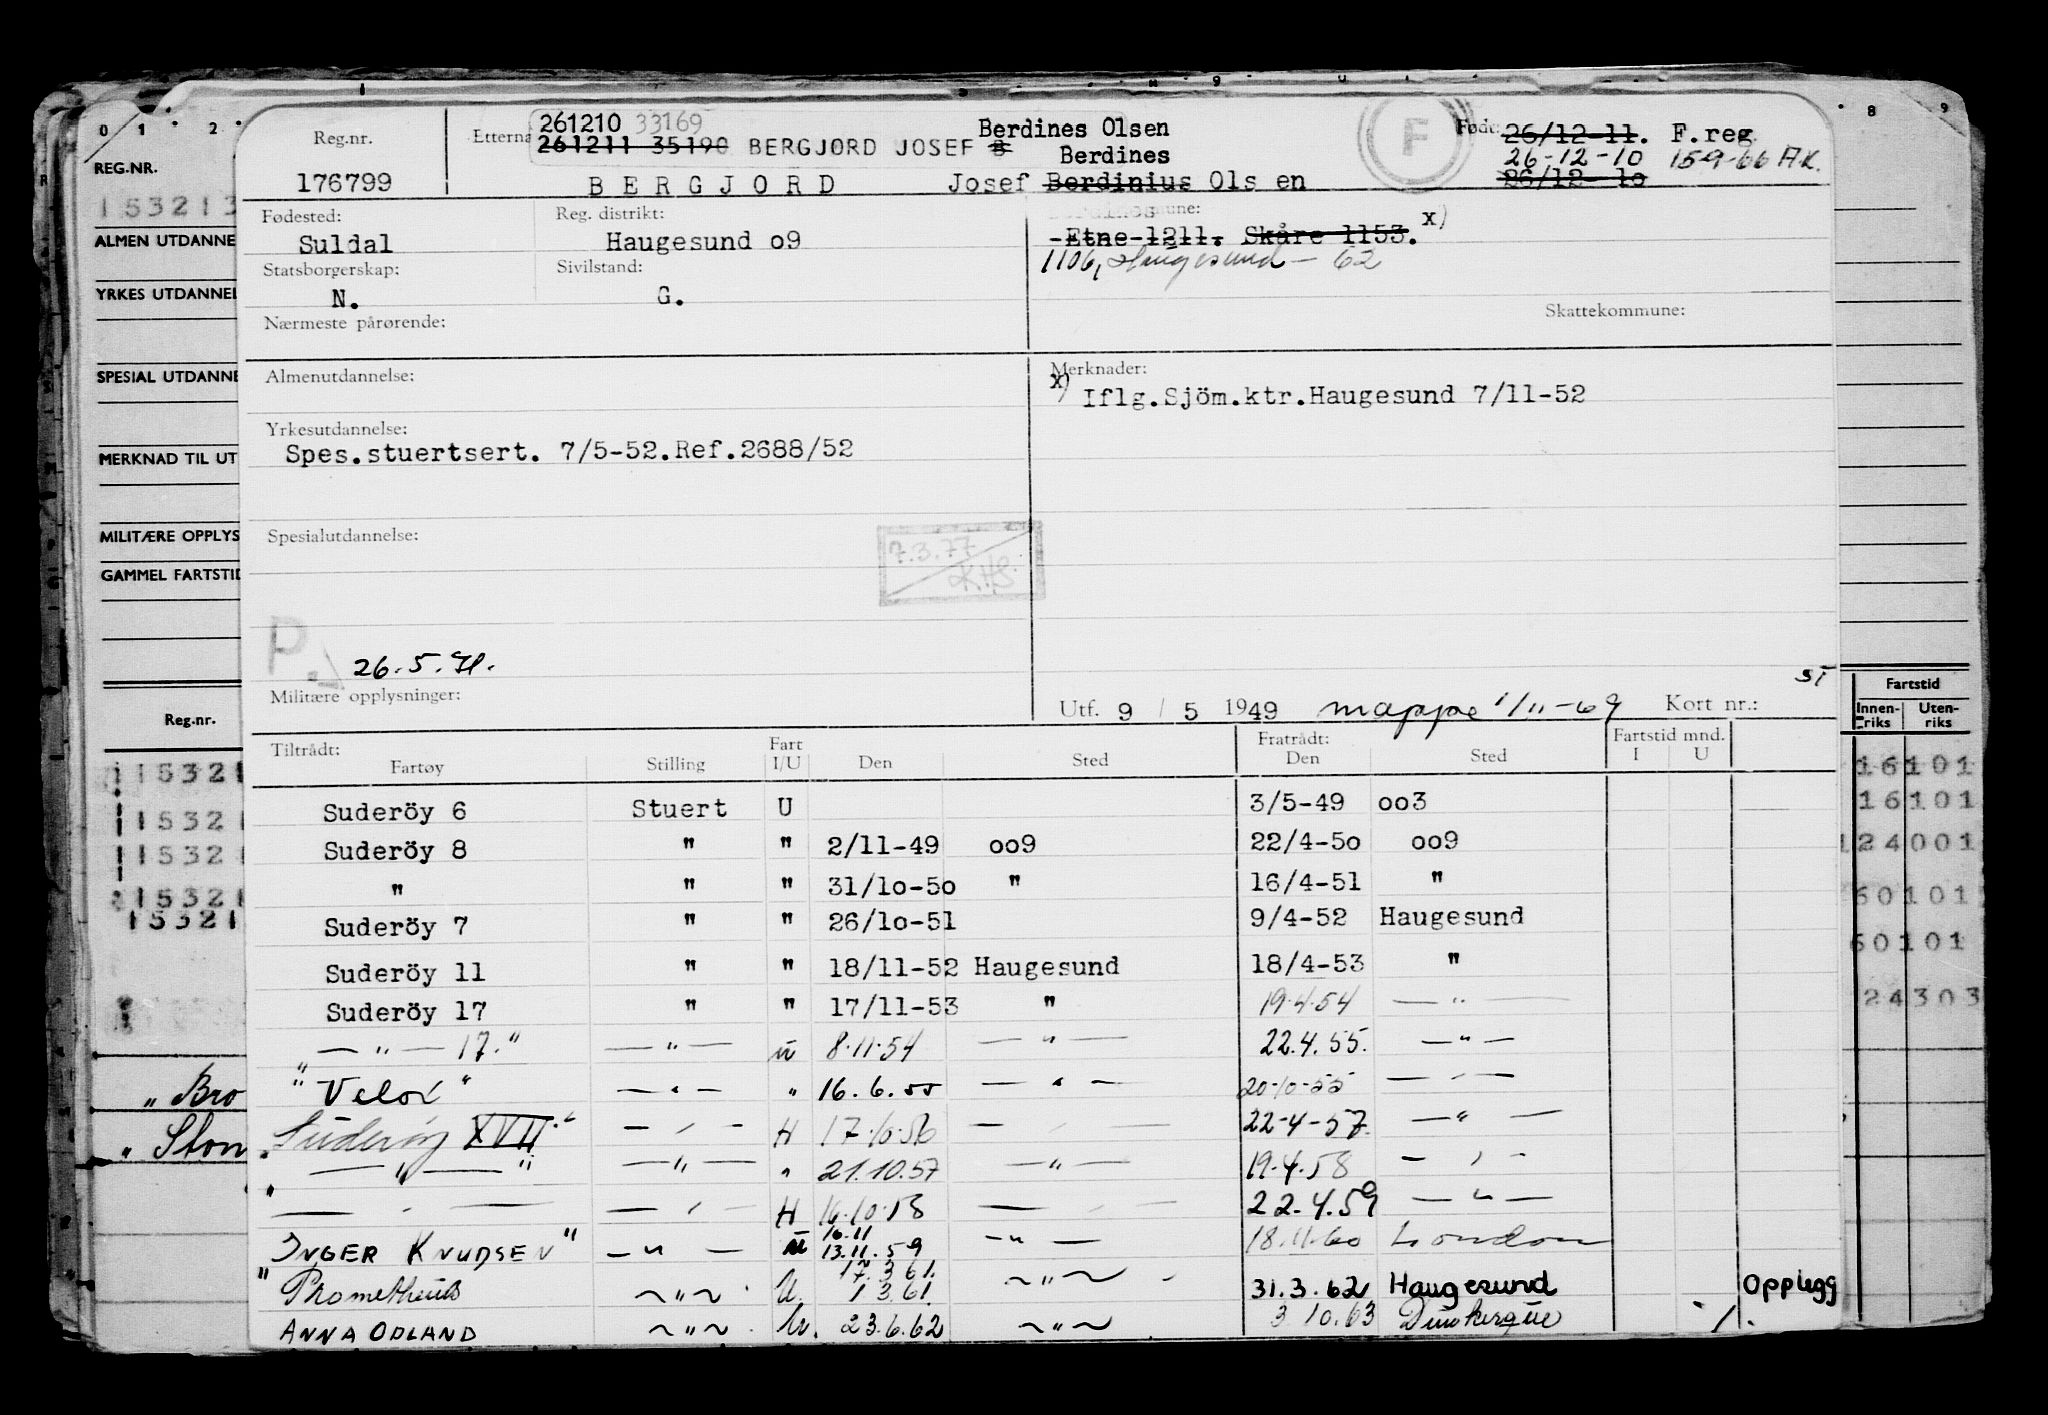 0 1 2 8 9
REG.NR.
153213
ALMEN UTDANNE
YRKES UTDANNEL
SPESIAL UTDANNE
MERKNAD TIL UT
MILITÆRE OPPLYS
GAMMEL FARTSTID
Reg.nr.
15321
15321
15321
15321
15321
„ Bro
„ Ston
Reg.nr. Etterna 261210 33169 Berdines Olsen F Født: 26/12-11. F.reg
261211 35190 BERGJORD JOSEF B Berdines 26-12-10 15-9-66 AK.
176799 BERGJORD Josef Berdinius Olsen 26/12-10
Fødested: Reg. distrikt: mune: x)
Suldal Haugesund o9 Etne-1211. Skåre 1153.
Statsborgerskap: Sivilstand: 1106, Haugesund - 62
N. G.
Nærmeste pårørende: Skattekommune:
Almenutdannelse: Merknader:
x) Iflg.Sjöm.ktr.Haugesund 7/11-52
Yrkesutdannelse:
Spes.stuertsert. 7/5-52.Ref.2688/52
Spesialutdannelse: 7.3.77
KHS.
P. 26.5.71.
Militære opplysninger: Utf. 9 / 5 1949 mappe 1/11-69 Kort nr.: ST
Fartstid
Innenriks Utenriks
Tiltrådt: Fart Fratrådt: Fartstid mnd.
Fartøy Stilling I/U Den Sted Den Sted I U
Suderöy 6 Stuert U 3/5-49 oo3
Suderöy 8 " " 2/11-49 oo9 22/4-5o oo9
" " " 31/1o-5o " 16/4-51 "
Suderöy 7 " " 26/1o-51 9/4-52 Haugesund
Suderöy 11 " " 18/11-52 Haugesund 18/4-53 "
Suderöy 17 " " 17/11-53 " 19.4.54 — " —
„ — " — 17." — " — u 8.11.54 — " — 22.4.55. — " —
"Velox" — " — " 16.6.55 — " — 20-10-55 — " —
„Suderöy XVII" — " — H 17.10.56 — " — 22-4-57. — " —
„ — " — " — " — " 21.10.57 — " — 19.4.58 — " —
— " — — " — H 16.10.58 — " — 22.4.59 — " —
INGER KNUDSEN" — " — U 16.11 13.11.59 — " — 18.11.60 London
"Prometheus — " — U. 17.3.61. 1 3.61. — " — 31.3.62 Haugesund Opplegg
ANNA ODLAND — " — U. 23.6.62 — " — 3 10.63 Dunkerque
16101
16101
124001
60101
60101
24303